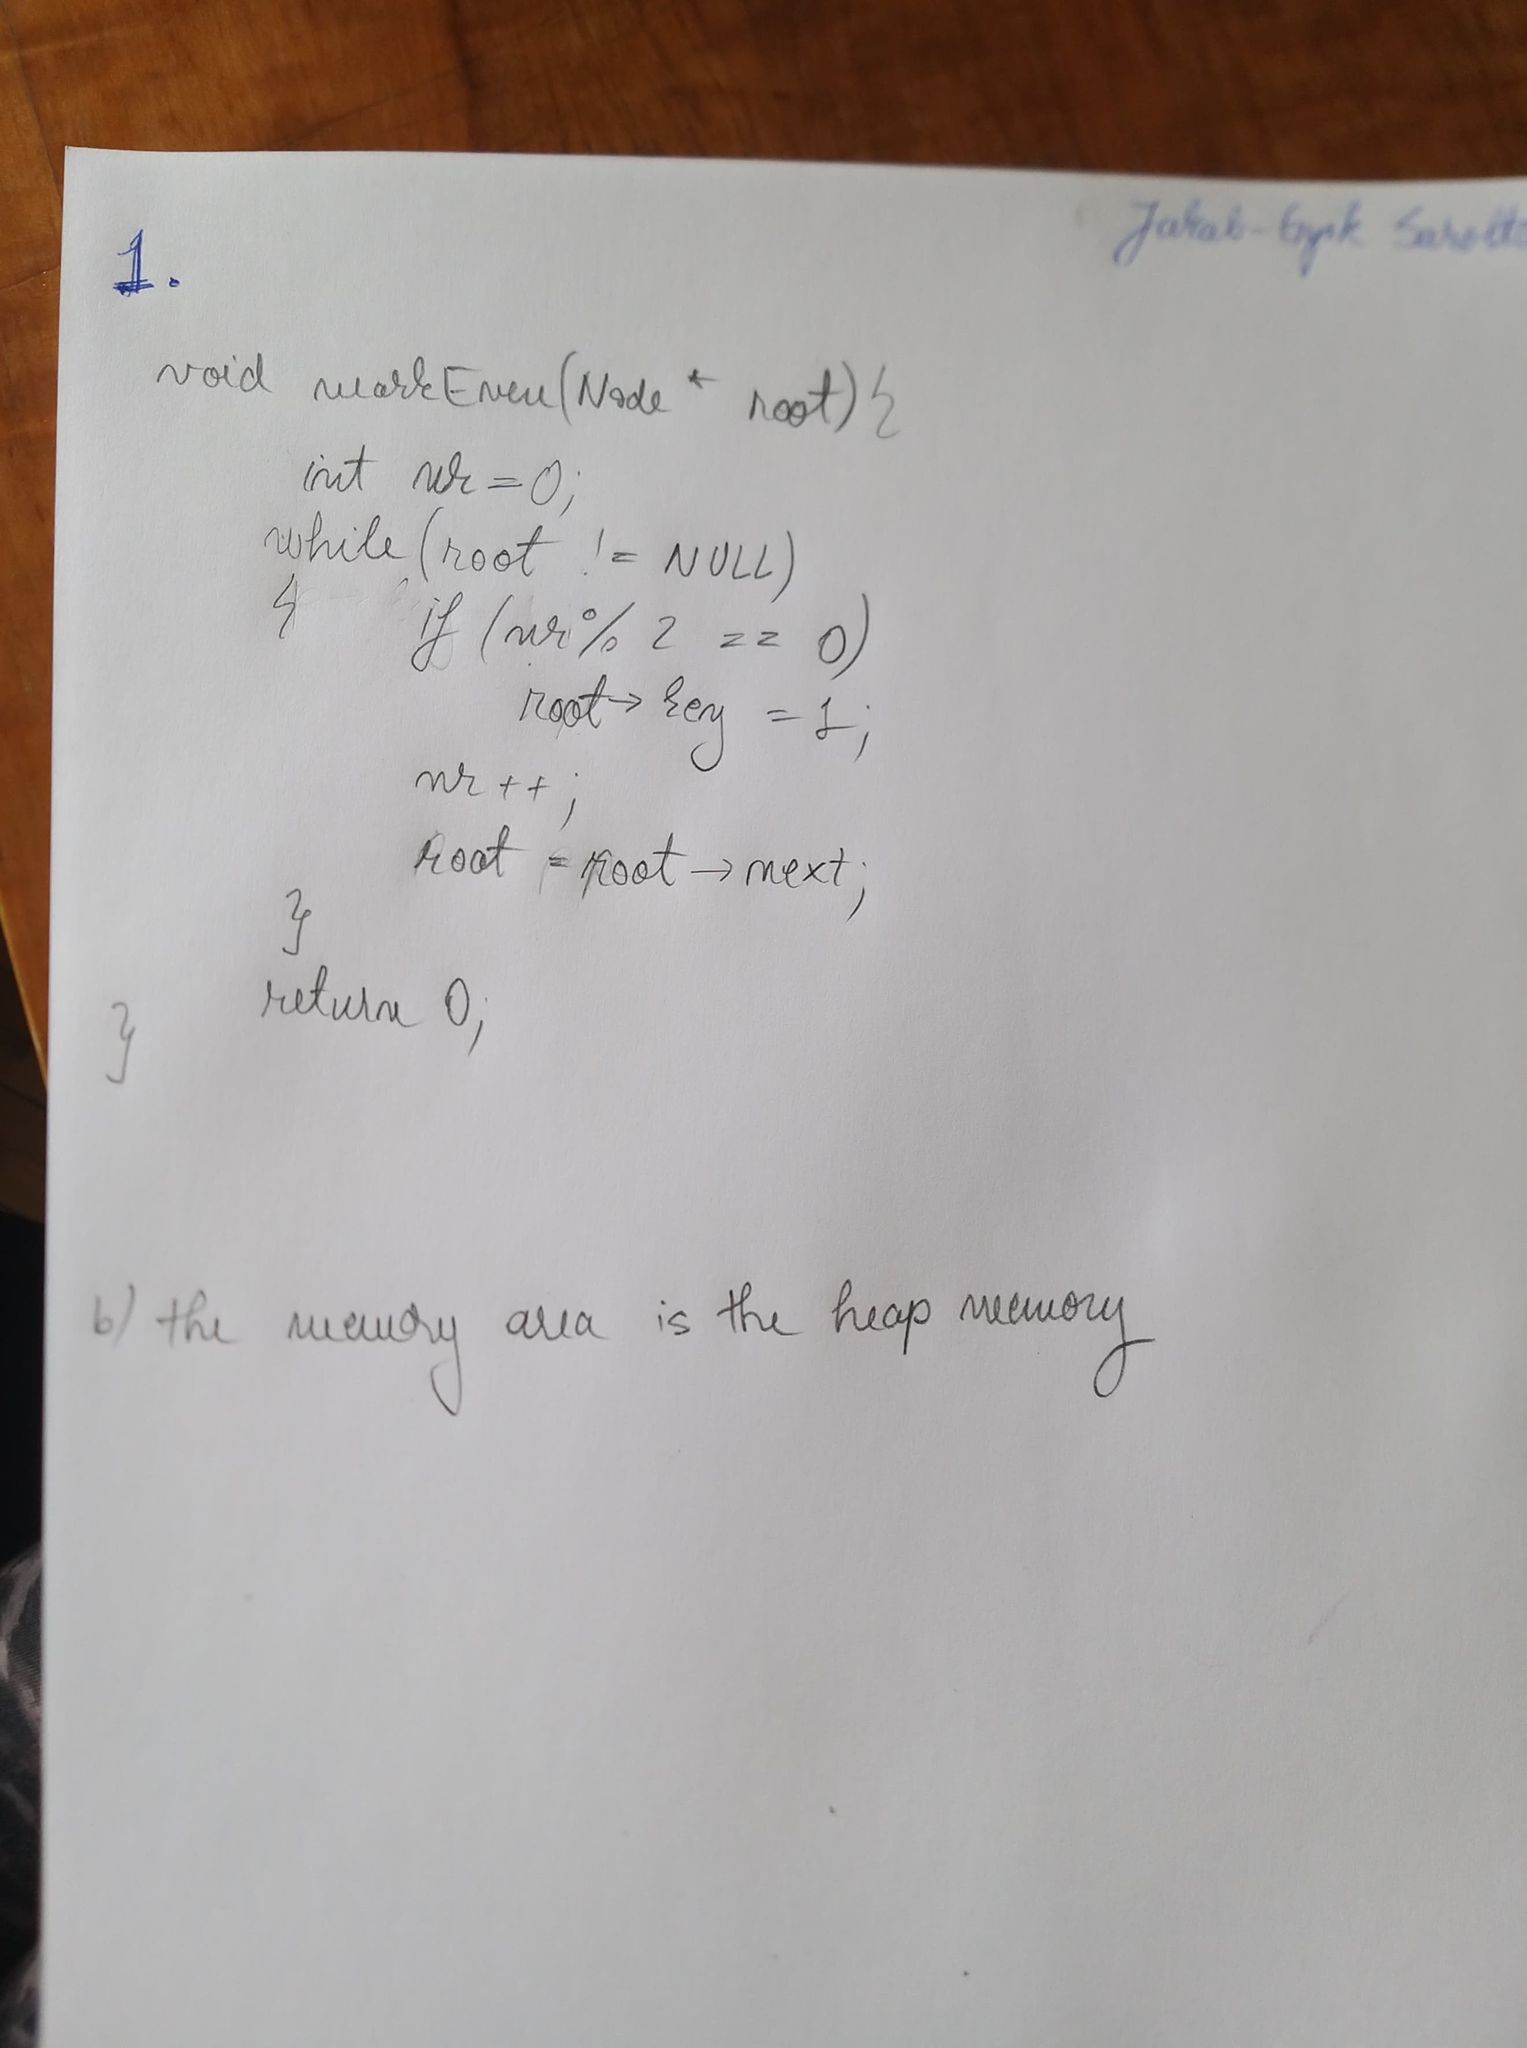 1.
void markEven(Node * root){
int nr = 0;
while (root != NULL)
{ if (nr % 2 == 0)
root → key = 1;
nr ++ ;
root = root → next;
}
return 0;
}
b) the memory area is the heap memory